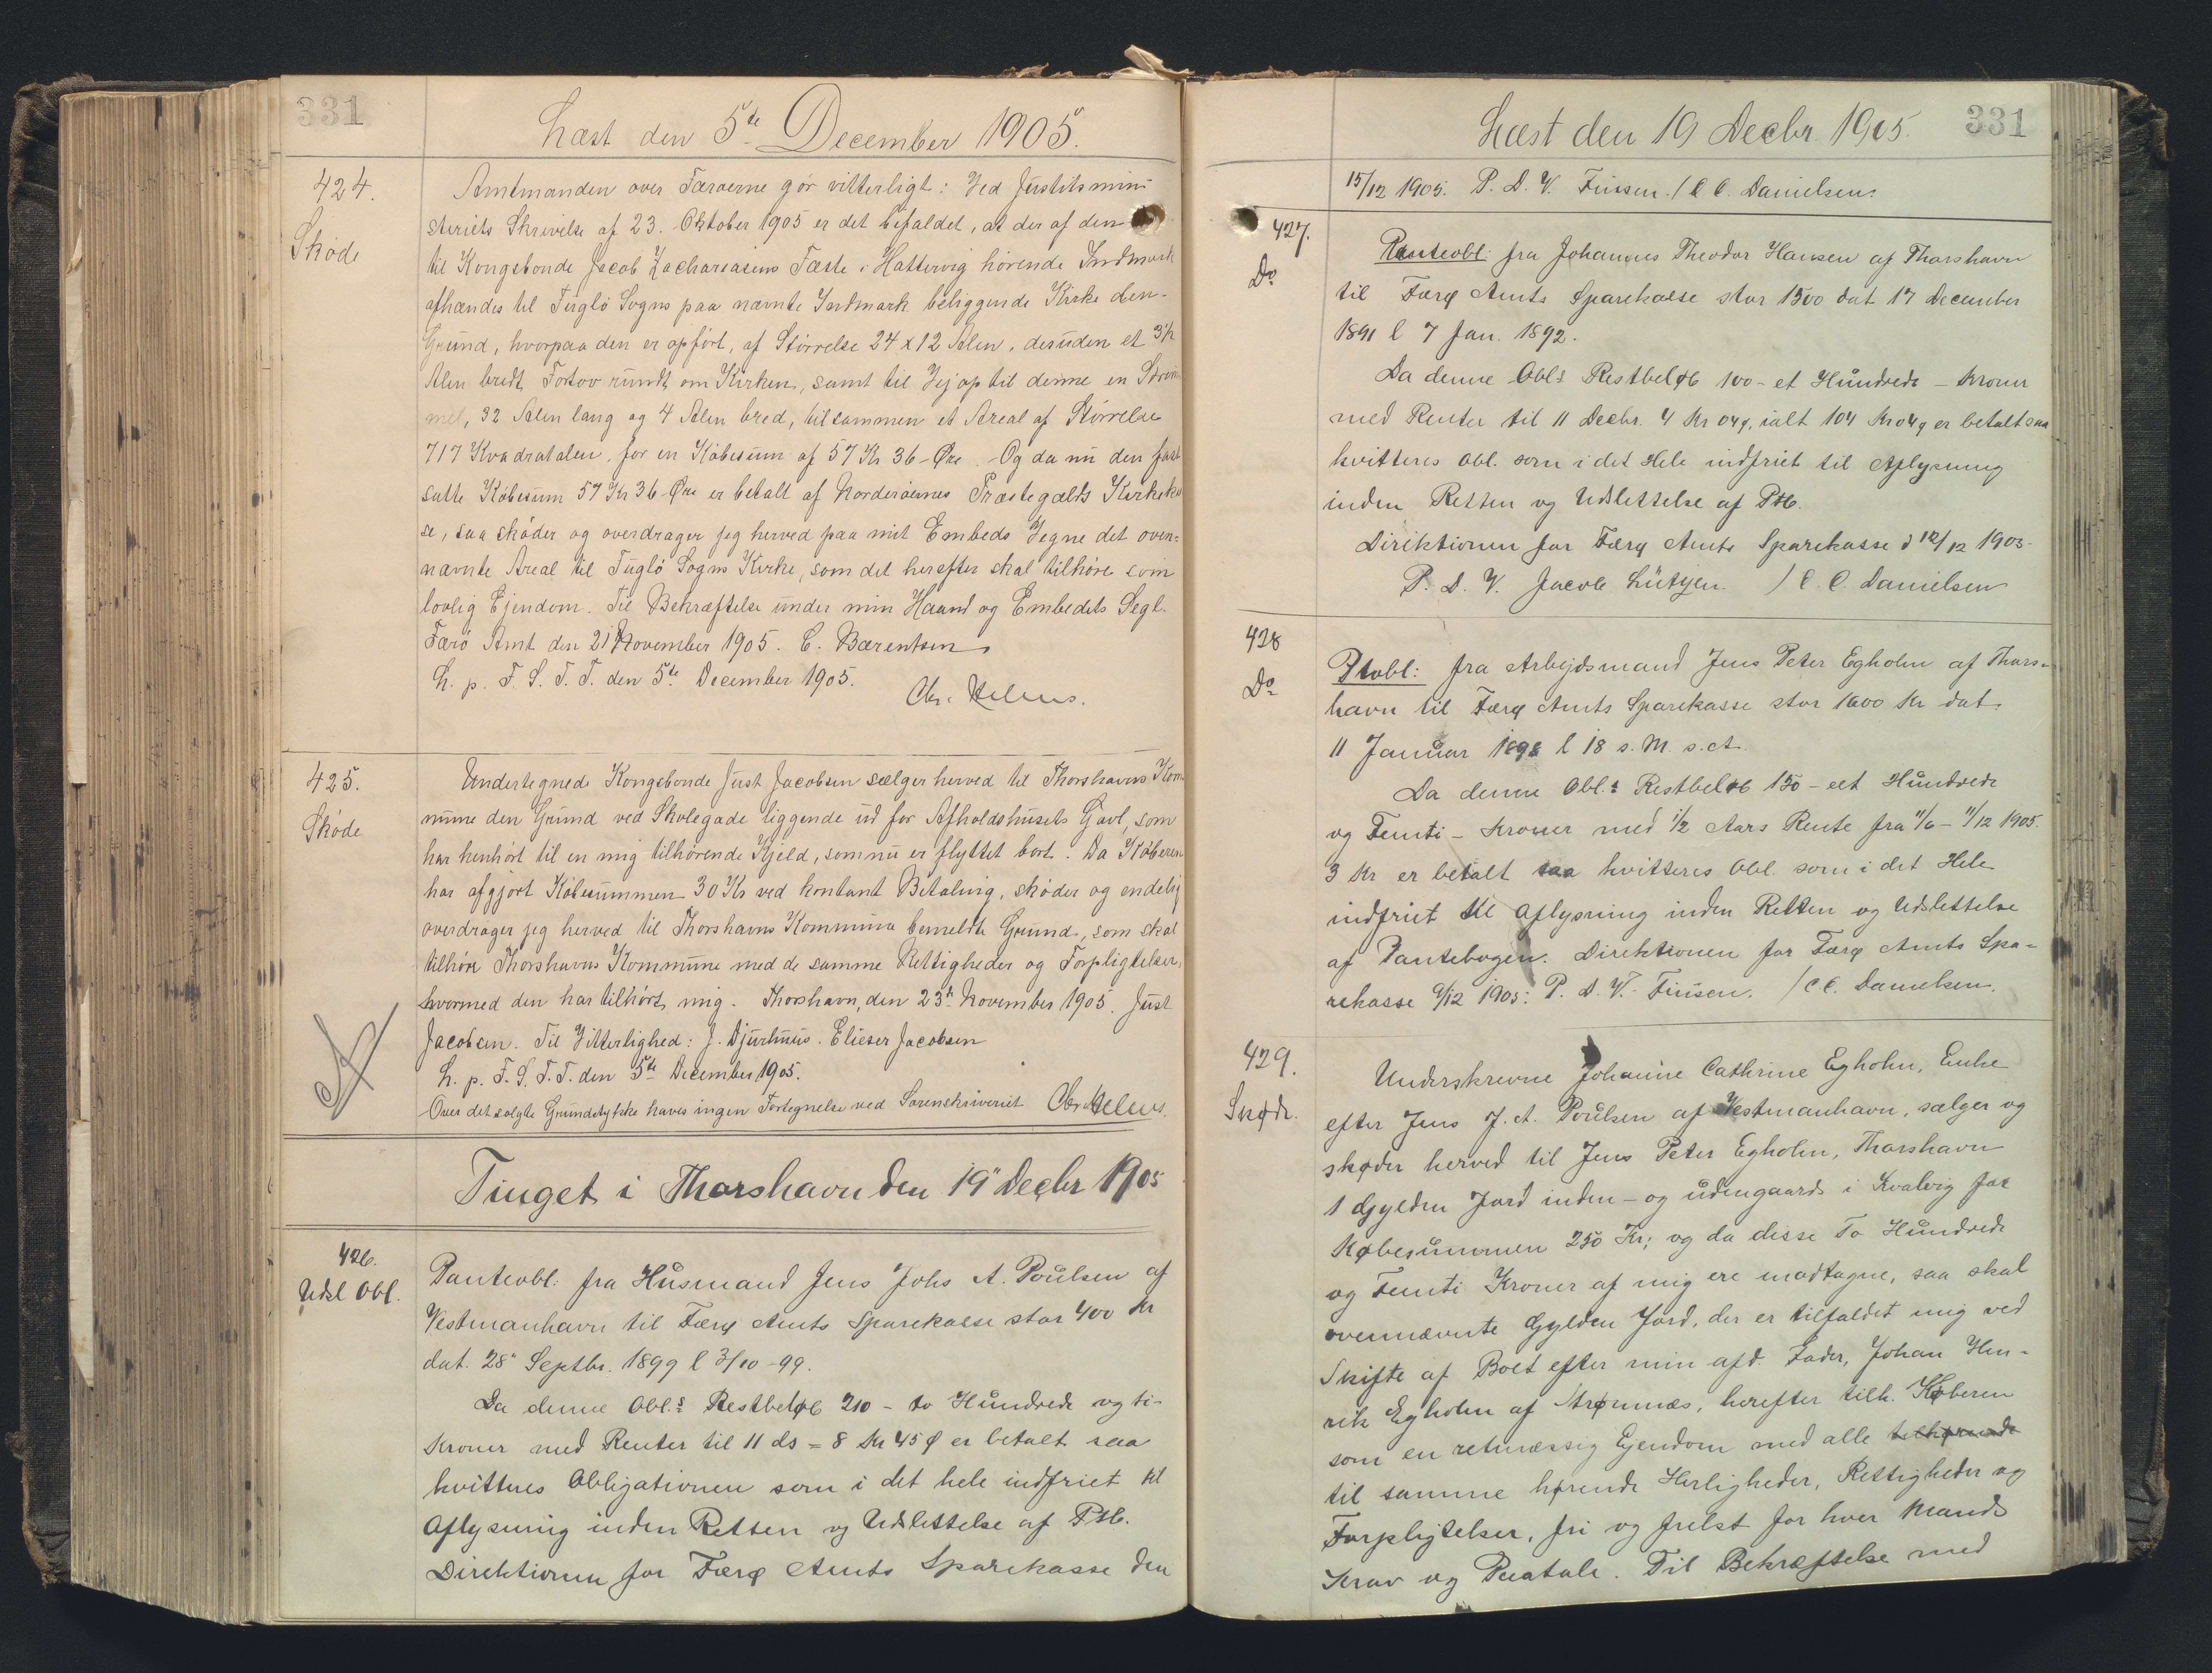 331
Læst den 5te December 1905.
424.
Skøde
Amtmanden over Færøerne gør vitterligt: Ved Justitsmini-
steriets Skrivelse af 23. Oktober 1905 er det befaldet, at der af den
til Kongsbonde Jacob Zachariasens Fæste i Hattervig hørende Indmark
afhændes til Fuglø Sogns paa nævnte Indmark beliggende Kirke den
Grund, hvorpaa den er opført, af Størrelse 24 x 12 Alen, desuden et 3½
Alen bredt Fortov rundt om Kirken, samt til Vej op til denne en Strim
mel, 32 Alen lang og 4 Alen bred, tilsammen et Areal af Størrelse
717 Kvadratalen, for en Købesum af 57 Kr 36 Øre. Og da nu den fast
satte Købesum 57 Kr 36 Øre er betalt af Norderøernes Præstegælds Kirkekas
se, saa skøder og overdrager jeg herved paa mit Embeds Vegne det oven-
nævnte Areal til Fuglø Sogns Kirke, som det herefter skal tilhøre som
lovlig Ejendom. Til Bekræftelse under min Haand og Embedets Segl.
Færø Amt den 21 November 1905. C. Bærentsen
L. p. F. S. T. T. den 5te December 1905.
Chr.
425.
Skøde
Undertegnede Kongsbonde Just Jacobsen sælger herved til Thorshavns Kom
mune den Grund ved Skolegade liggende ud for Afholdshusets Gavl, som
har henhørt til en mig tilhørende Kjeld, som nu er flyttet bort. Da Køberen
har afgjort Købesummen 30 Kr ved kontant Betaling, skøder og endelig
overdrager jeg herved til Thorshavns Kommune bemeldte Grund, som skal
tilhøre Thorshavns Kommune med de samme Rettigheder og Forpligtelser,
hvormed den har tilhørt mig. Thorshavn, den 23de November 1905. Just
Jacobsen. Til Vitterlighed: J. Djurhuus. Elieser Jacobsen
L. p. F. S. T. T. den 5te December 1905.
Over det solgte Grundstykke haves ingen Fortegnelse ved Sorenskriveriet Chr.
Tinget i Thorshavn den 19" Decbr 1905
426.
Udsl Obl.
Panteobl. fra Husmand Jens Johs A. Poulsen af
Vestmanhavn til Færø Amts Sparekasse stor 400 Kr
dat. 28" Septbr. 1899 l 3/10 -99.
Da denne Obl.s Restbeløb 210 - to Hundrede og ti-
Kroner med Renter til 11 ds = 8 Kr 45 Ø er betalt saa
kvitteres Obligationen som i det hele indfriet til
Aflysning inden Retten og Udslettelse af Ptb.
Direktionen for Færø Amts Sparekasse den
Læst den 19 Decbr. 1905.
331
15/12 1905. P. D. V. Finsen. / C C. Danielsen.
427.
Do
Panteobl: fra Johannes Theodor Hansen af Thorshavn
til Færø Amts Sparekasse stor 1500 dat 17 December
1891 l 7 Jan. 1892.
Da denne Obls Restbeløb 100 - et Hundrede - Kroner
med Renter til 11 Decbr. 4 Kr 04 ø, ialt 104 Kr 04 ø er betalt saa
kvitteres Obl. som i det Hele indfriet til Aflysning
inden Retten og Udslettelse af Ptb.
Direktionen for Færø Amts Sparekasse d 12/12 1905-
P. D. V. Jacob Lützen. / C. C. Danielsen
428
Do
Ptobl: fra Arbejdsmand Jens Peter Egholm af Thors-
havn til Færø Amts Sparekasse stor 1600 Kr dat.
11 Januar 1898 l 18 s. M. s. A.
Da denne Obl.s Restbeløb 150 - eet Hundrede
og Femti - Kroner med 1/2 Aars Rente fra 11/6 - 11/12 1905.
3 Kr er betalt saa kvitteres Obl. som i det Hele
indfriet til Aflysning inden Retten og Udslettelse
af Pantebogen. Direktionen for Færø Amts Spa-
rekasse 9/12 1905. P. D. V. Finsen. / C C. Danielsen.
429.
Skøde.
Underskrevne Johanne Cathrine Egholm, Enke
efter Jens J. A. Poulsen af Vestmanhavn, sælger og
skøder herved til Jens Peter Egholm, Thorshavn
1 Gylden Jord inden- og udengaards i Kvalvig for
Købesummen 250 Kr; og da disse To Hundrede
og Femti Kroner af mig ere modtagne, saa skal
ovennævnte Gylden Jord, der er tilfaldet mig ved
Skifte af Boet efter min afd. Fader, Johan Hen-
rik Egholm af Strømnæs, herefter tilh. Køberen
som en retmæssig Ejendom med alle tilhørende
til samme hørende Herligheder, Rettigheder og
Forpligtelser, fri og frelst for hver Mands
Krav og Paatale. Til Bekræftelse med